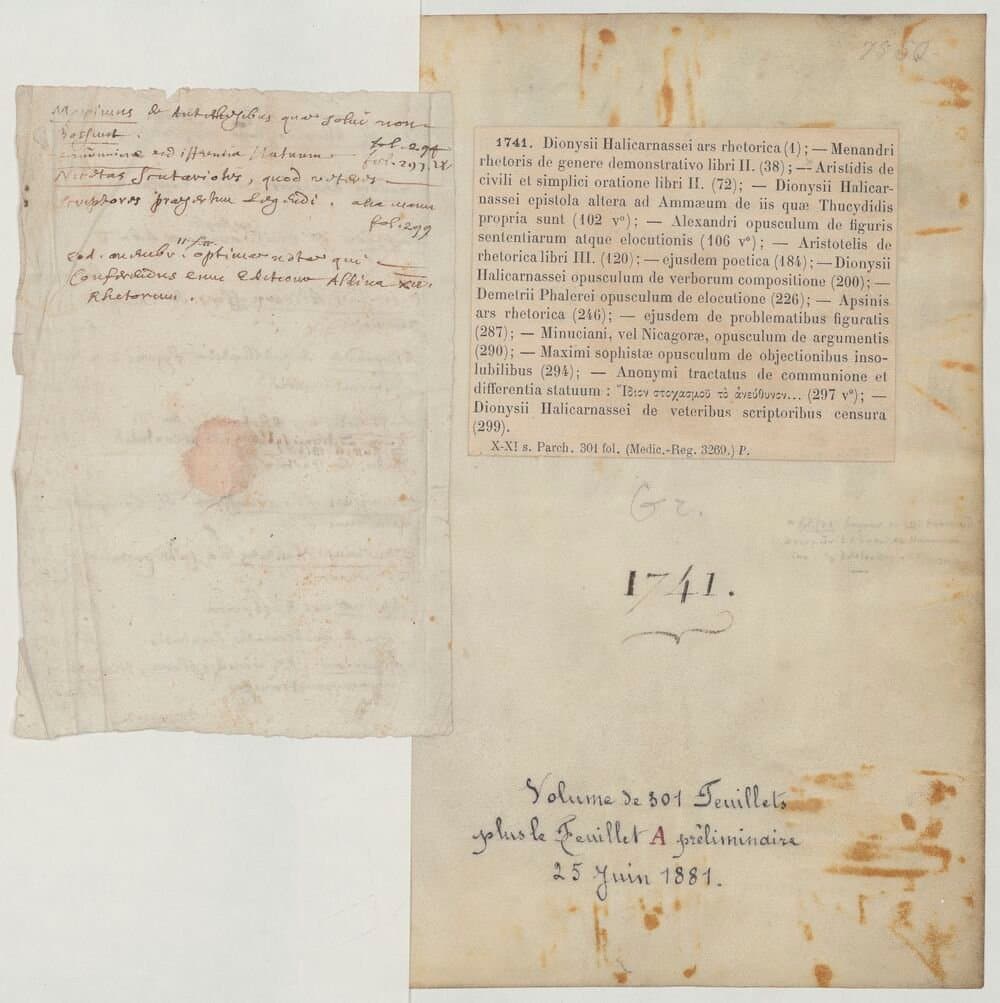 Maximus de Antithesibus quæ solvi non
possunt. fol. 294
fol. 297.
scriptores præsertim legendi. alia manu
fol. 299
optimæ notæ qui
Conferendus cum editione Aldina
Rhetorum.
7350
1741. Dionysii Halicarnassei ars rhetorica (1); — Menandri
rhetoris de genere demonstrativo libri II. (38); — Aristidis de
civili et simplici oratione libri II. (72); — Dionysii Halicar-
nassei epistola altera ad Ammæum de iis quæ Thucydidis
propria sunt (102 v°); — Alexandri opusculum de figuris
sententiarum atque elocutionis (106 v°); — Aristotelis de
rhetorica libri III. (120); — ejusdem poetica (184); — Dionysii
Halicarnassei opusculum de verborum compositione (200); —
Demetrii Phalerei opusculum de elocutione (226); — Apsinis
ars rhetorica (246); — ejusdem de problematibus figuratis
(287); — Minuciani, vel Nicagoræ, opusculum de argumentis
(290); — Maximi sophistæ opusculum de objectionibus inso-
lubilibus (294); — Anonymi tractatus de communione et
differentia statuum : Ἴδιον στοχασμοῦ τὸ ἀνεύθυνον... (297 v°); —
Dionysii Halicarnassei de veteribus scriptoribus censura
(299).
X-XI s. Parch. 301 fol. (Medic.-Reg. 3269.) P.
Gr.
1741.
Volume de 301 Feuillets
plus le Feuillet A préliminaire
25 Juin 1881.